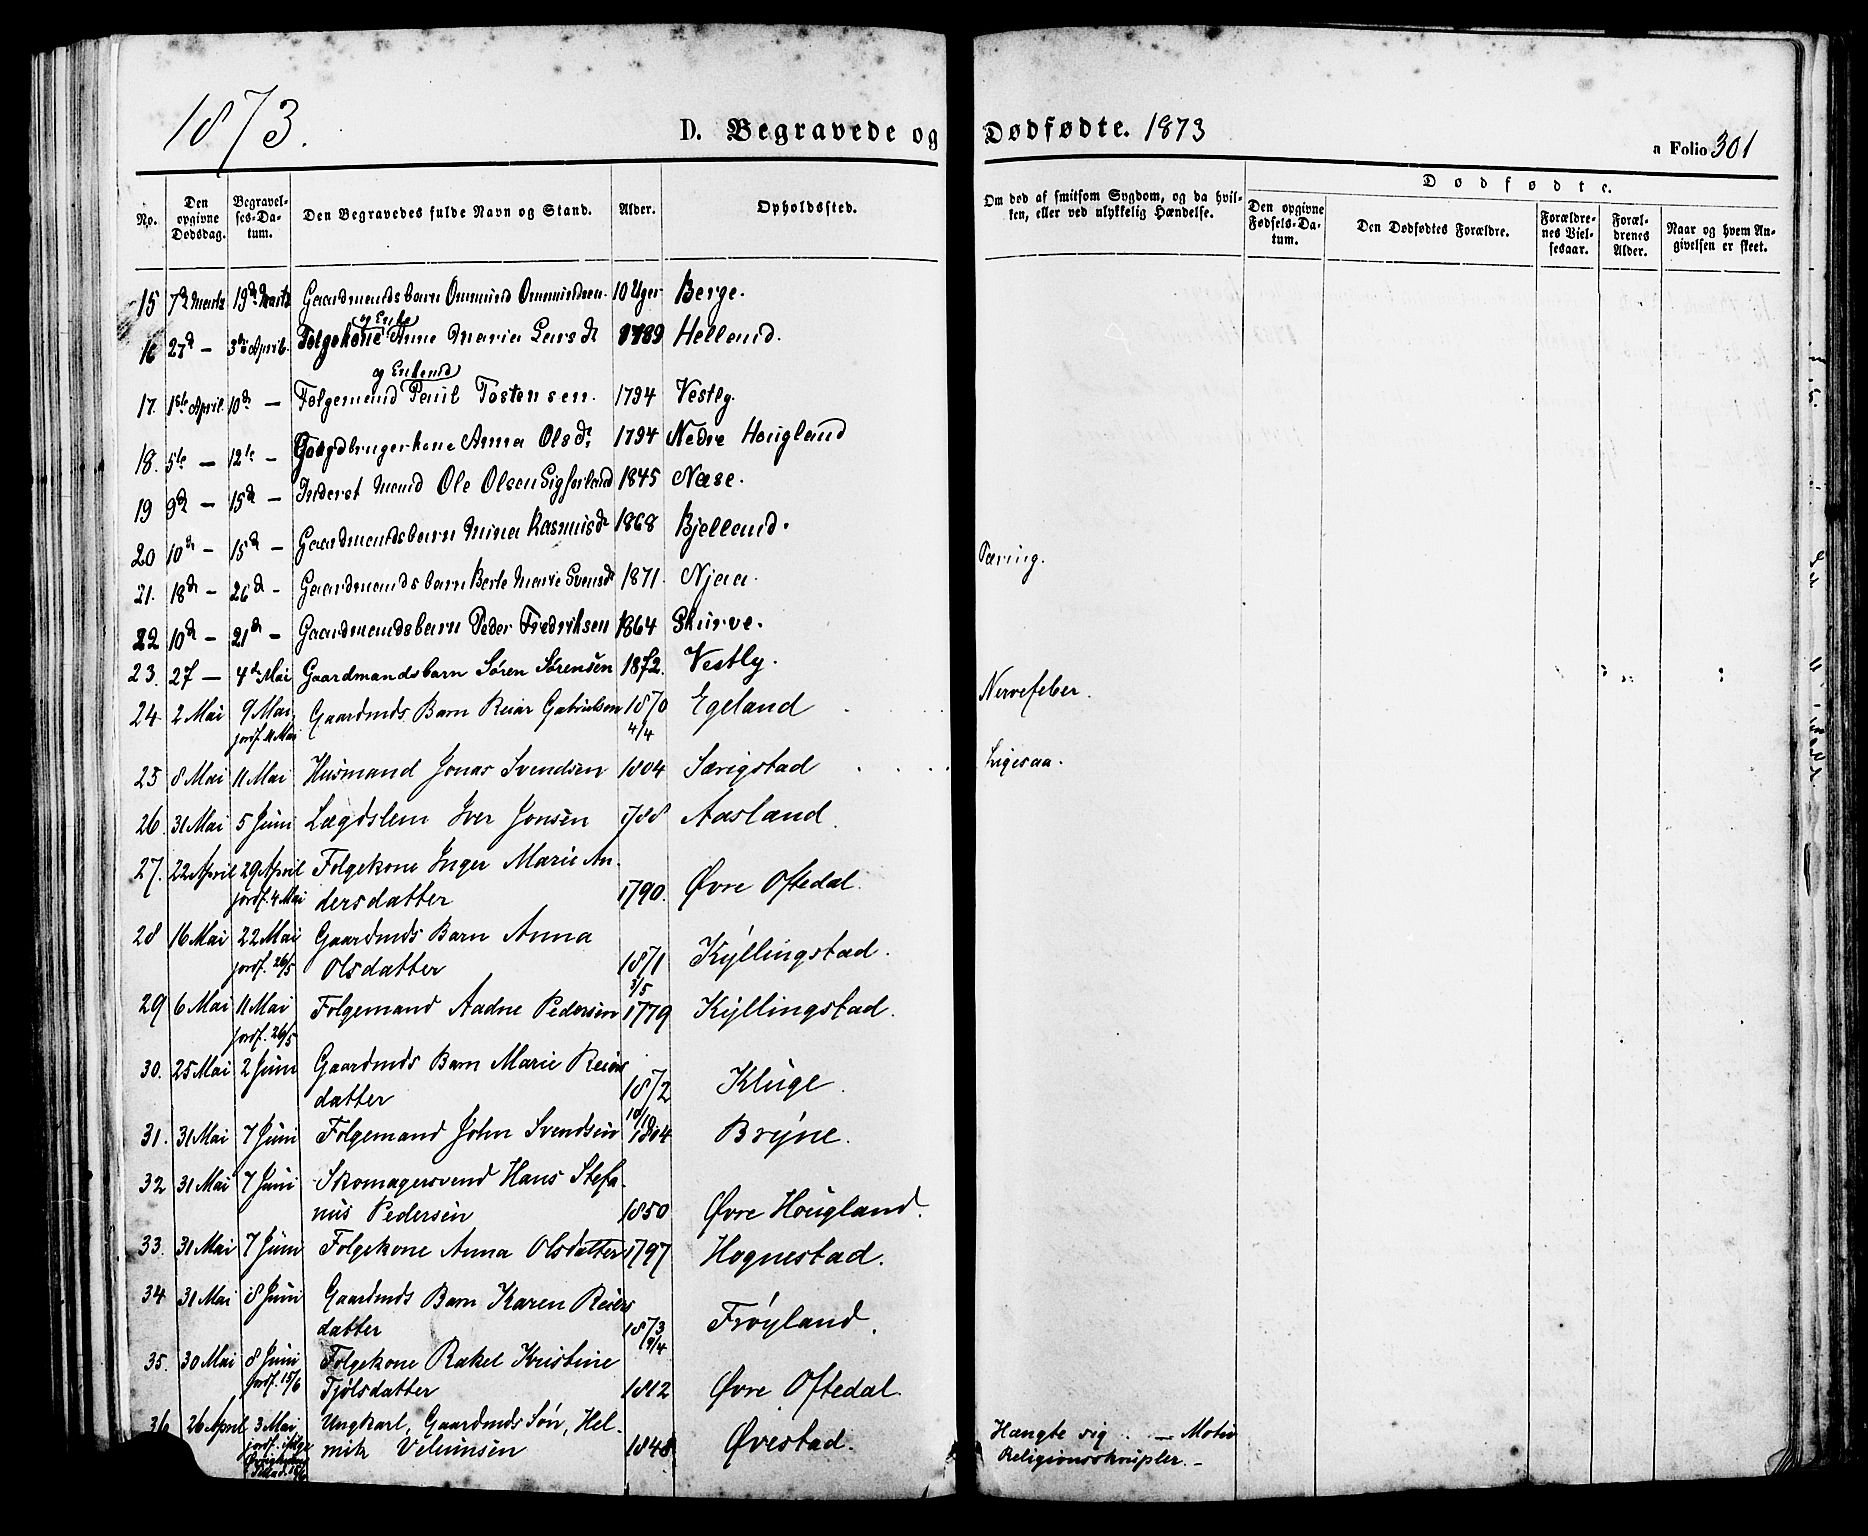 1873.
D. Begravede og Dødfødte. 1873
a Folio 301
No.
Den opgivne Dødsdag.
Begravelses-Datum.
Den Begravedes fulde Navn og Stand.
Alder.
Opholdssted.
Om død af smitsom Sygdom, og da hvilken, eller ved ulykkelig Hændelse.
Dødfødte.
Den opgivne Fødsels-Datum.
Den Dødfødtes Forældre.
Forældrenes Vielsesaar.
Forældrenes Alder.
Naar og hvem Angivelsen er skeet.
15 7d Marts 19d Marts Gaardmandsbarn Ommund Ommundsen 10 Uger Berge.
og Enke
16 27d — 3die April. Følgekone Anne Maria Larsd 1789 Helland.
og Enkemd
17. 1ste April. 10d — Følgemand Poul Tostensen. 1794 Vestly.
18. 5te — 12te — Gaardbrugerkone Anna Olsd. 1794 Nedre Hougland
19 9d — 15d — Inderst Mand Ole Olsen Sigferland 1845 Næse.
20 10d — 15d — Gaardmandsbarn Mina Rasmusd 1868 Bjelland.
Tæring.
21. 18d — 26d — Gaardmandsbarn Berte Marie Svensd 1871. Njaa.
22 10d — 21d — Gaardmandsbarn Peder Fredriksen 1864 Skurve.
23. 27 — 4de Mai Gaardmandsbarn Søren Sørensen 1872. Vestly.
24. 2 Mai 9 Mai Gaardmds Barn Reiar Gabrielsen 1870 Egeland . . . . Nervefeber.
jordf. 11 Mai 4/4
25 8 Mai 11 Mai Husmand Jonas Svendsen 1804 Særigstad . . . . Ligesaa.
26. 31 Mai 5 Juni Lægdslem Iver Jonsen 1788 Aasland.
27. 22 April 29 April Følgekone Inger Marie An-
jordf. 4 Mai dersdatter 1790. Øvre Oftedal.
28 16 Mai 22 Mai Gaardmds Barn Anna
jordf. 26/5 Olsdatter 1871 Kyllingstad.
3/5
29 6 Mai 11 Mai Følgemand Aadne Pedersen 1779 Kyllingstad.
jordf. 26/5
30. 25 Mai 2 Juni Gaardmds Barn Marie Reiers
datter 1872 Kluge.
31. 31 Mai 7 Juni Følgemand John Svendsen 1804 Bryne.
32 31 Mai 7 Juni Skomagersvend Hans Stefa-
nus Pedersen 1850 Øvre Hougland.
33. 31 Mai 7 Juni Følgekone Anna Olsdatter 1797 Hognestad.
34 31 Mai 8 Juni Gaardmds Barn Karen Reiers
datter 1873 Frøyland.
35. 30 Mai 8 Juni Følgekone Rakel Kristine
jordf. 15/6 Tjølsdatter 1812 Øvre Oftedal.
36 26 April 3 Mai Ungkarl, Gaardmds Søn, Hel-
jordf. mik Veluinsen 1848 Øvestad. Hængte sig. — Motiv
Religionsskrupler. —